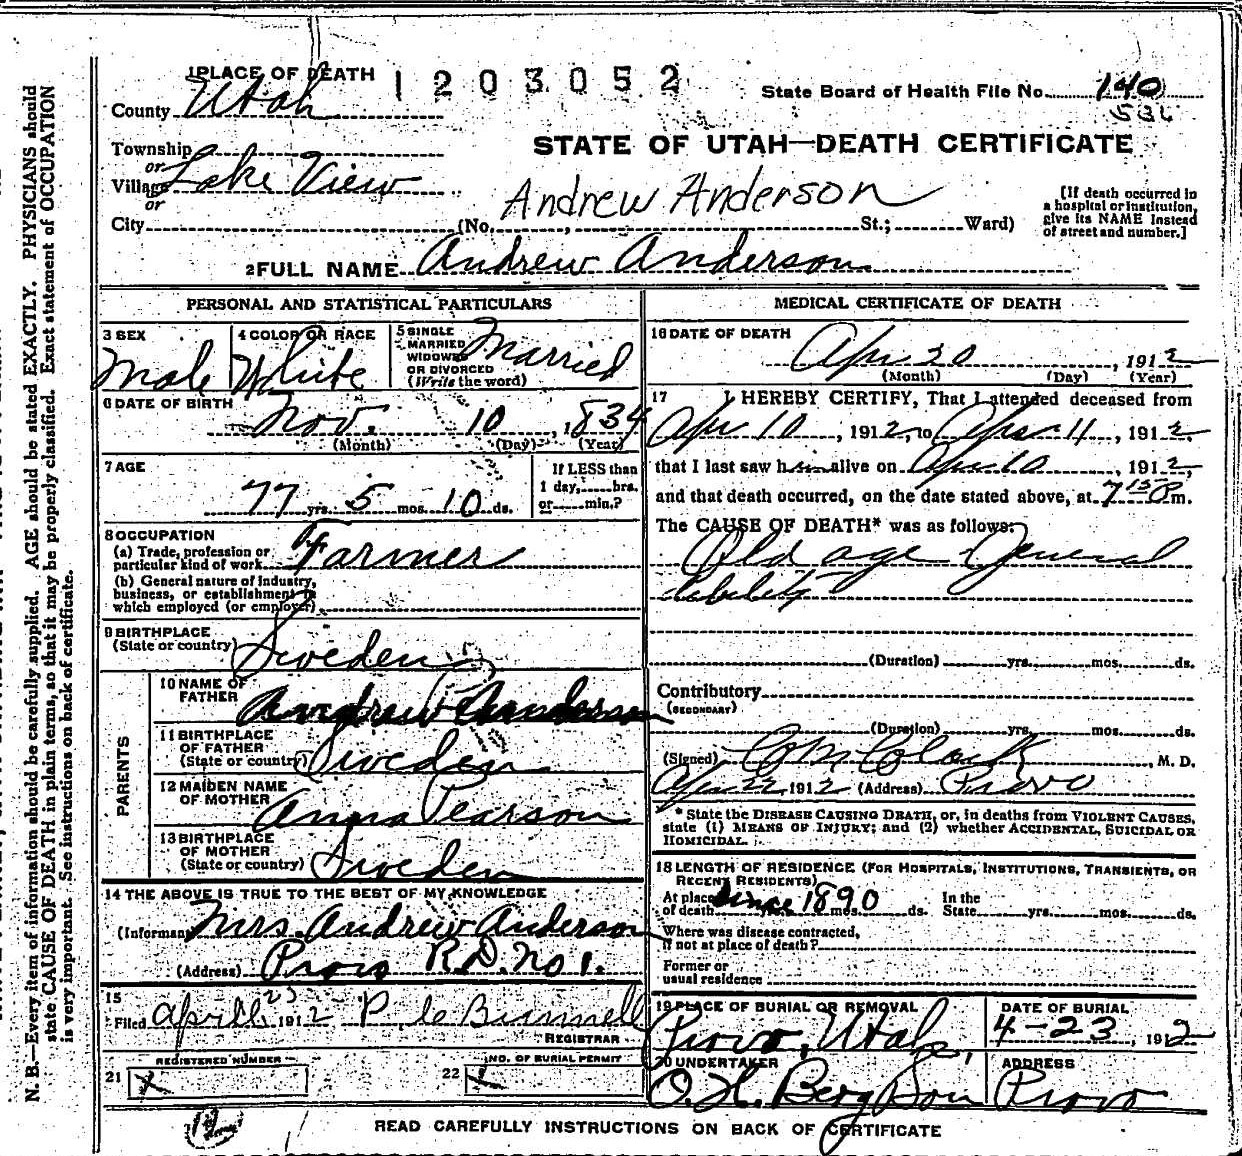 1 PLACE OF DEATH
1203052
State Board of Health File No. 140
536
County Utah
STATE OF UTAH—DEATH CERTIFICATE
Township
or
Village Lake View
or
Andrew Anderson
[If death occurred in
a hospital or institution,
give its NAME instead
of street and number.]
City (No. , St.; Ward)
2 FULL NAME Andrew Anderson
PERSONAL AND STATISTICAL PARTICULARS
3 SEX
Male
4 COLOR OR RACE
White
5 SINGLE
MARRIED
WIDOWED
OR DIVORCED
(Write the word)
Married
6 DATE OF BIRTH
Nov. 10, 1834
(Month) (Day) (Year)
7 AGE
77 yrs. 5 mos. 10 ds.
If LESS than
1 day, hrs.
or min.?
8 OCCUPATION
(a) Trade, profession or
particular kind of work Farmer
(b) General nature of industry,
business, or establishment in
which employed (or employer)
9 BIRTHPLACE
(State or country) Sweden
PARENTS
10 NAME OF
FATHER Andrew Anderson
11 BIRTHPLACE
OF FATHER
(State or country) Sweden
12 MAIDEN NAME
OF MOTHER Anna Pearson
13 BIRTHPLACE
OF MOTHER
(State or country) Sweden
14 THE ABOVE IS TRUE TO THE BEST OF MY KNOWLEDGE
(Informant) Mrs. Andrew Anderson
(Address) Provo R.D. No 1.
15
Filed April 23 1912 P. Bunnell
REGISTRAR
REGISTERED NUMBER
21
NO. OF BURIAL PERMIT
22
MEDICAL CERTIFICATE OF DEATH
16 DATE OF DEATH
Apr 20, 1912
(Month) (Day) (Year)
17 I HEREBY CERTIFY, That I attended deceased from
Apr 10, 1912, to Apr 11, 1912,
that I last saw him alive on Apr 10, 1912,
and that death occurred, on the date stated above, at 7 15 P m.
The CAUSE OF DEATH* was as follows:
Old age General
debility
(Duration) yrs. mos. ds.
Contributory
(SECONDARY)
(Duration) yrs. mos. ds.
(Signed) , M. D.
Apr 22 1912 (Address) Provo
* State the DISEASE CAUSING DEATH, or, in deaths from VIOLENT CAUSES,
state (1) MEANS OF INJURY; and (2) whether ACCIDENTAL, SUICIDAL OR
HOMICIDAL.
18 LENGTH OF RESIDENCE (FOR HOSPITALS, INSTITUTIONS, TRANSIENTS, OR
RECENT RESIDENTS)
At place
of death since 1890 yrs. mos. ds. In the
State yrs. mos. ds.
Where was disease contracted,
if not at place of death?
Former or
usual residence
19 PLACE OF BURIAL OR REMOVAL
Provo, Utah
DATE OF BURIAL
4-23, 1912
20 UNDERTAKER
O. H. Berg Son
ADDRESS
Provo
READ CAREFULLY INSTRUCTIONS ON BACK OF CERTIFICATE
N. B.—Every item of information should be carefully supplied. AGE should be stated EXACTLY. PHYSICIANS should
state CAUSE OF DEATH in plain terms, so that it may be properly classified. Exact statement of OCCUPATION
is very important. See instructions on back of certificate.